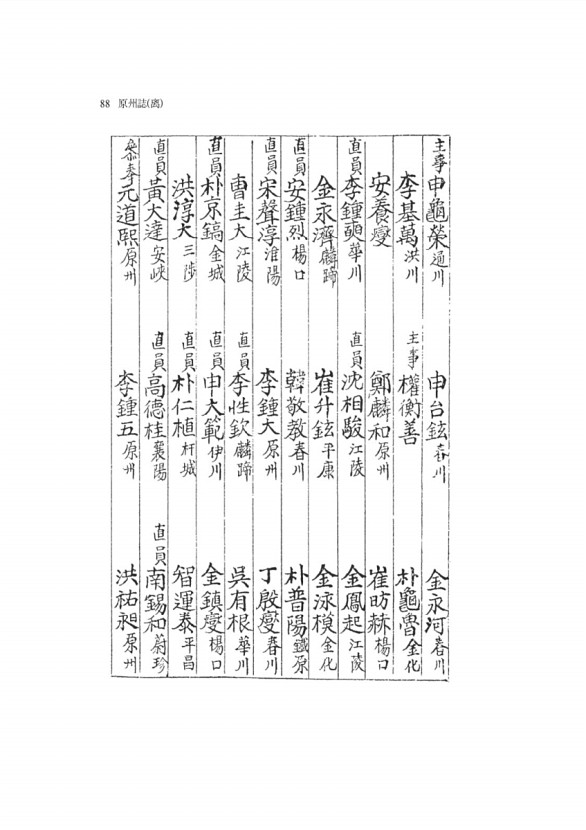 88 原州誌(离)
主事 申龜榮 通川
申台鉉 春川
金永河 春川
李基萬 洪川
主事 權衡善
朴龜魯 金化
安養燮
鄭麟和 原州
崔昉赫 楊口
直員 李鍾奭 華川
直員 沈相駿 江陵
金鳳起 江陵
金永濟 麟蹄
崔升鉉 平康
金泳模 金化
直員 安鍾烈 楊口
韓敬敎 春川
朴普陽 鐵原
直員 宋聲淳 淮陽
李鍾大 原州
丁殷燮 春川
曹圭大 江陵
直員 李性欽 麟蹄
吳有根 華川
直員 朴京鎬 金城
直員 申大範 伊川
金鎭燮 楊口
洪淳大 三陟
直員 朴仁植 杆城
智運泰 平昌
直員 黃大達 安峽
直員 高德桂 襄陽
直員 南錫和 蔚珍
叅奉 元道熙 原州
李鍾五 原州
洪祐昶 原州